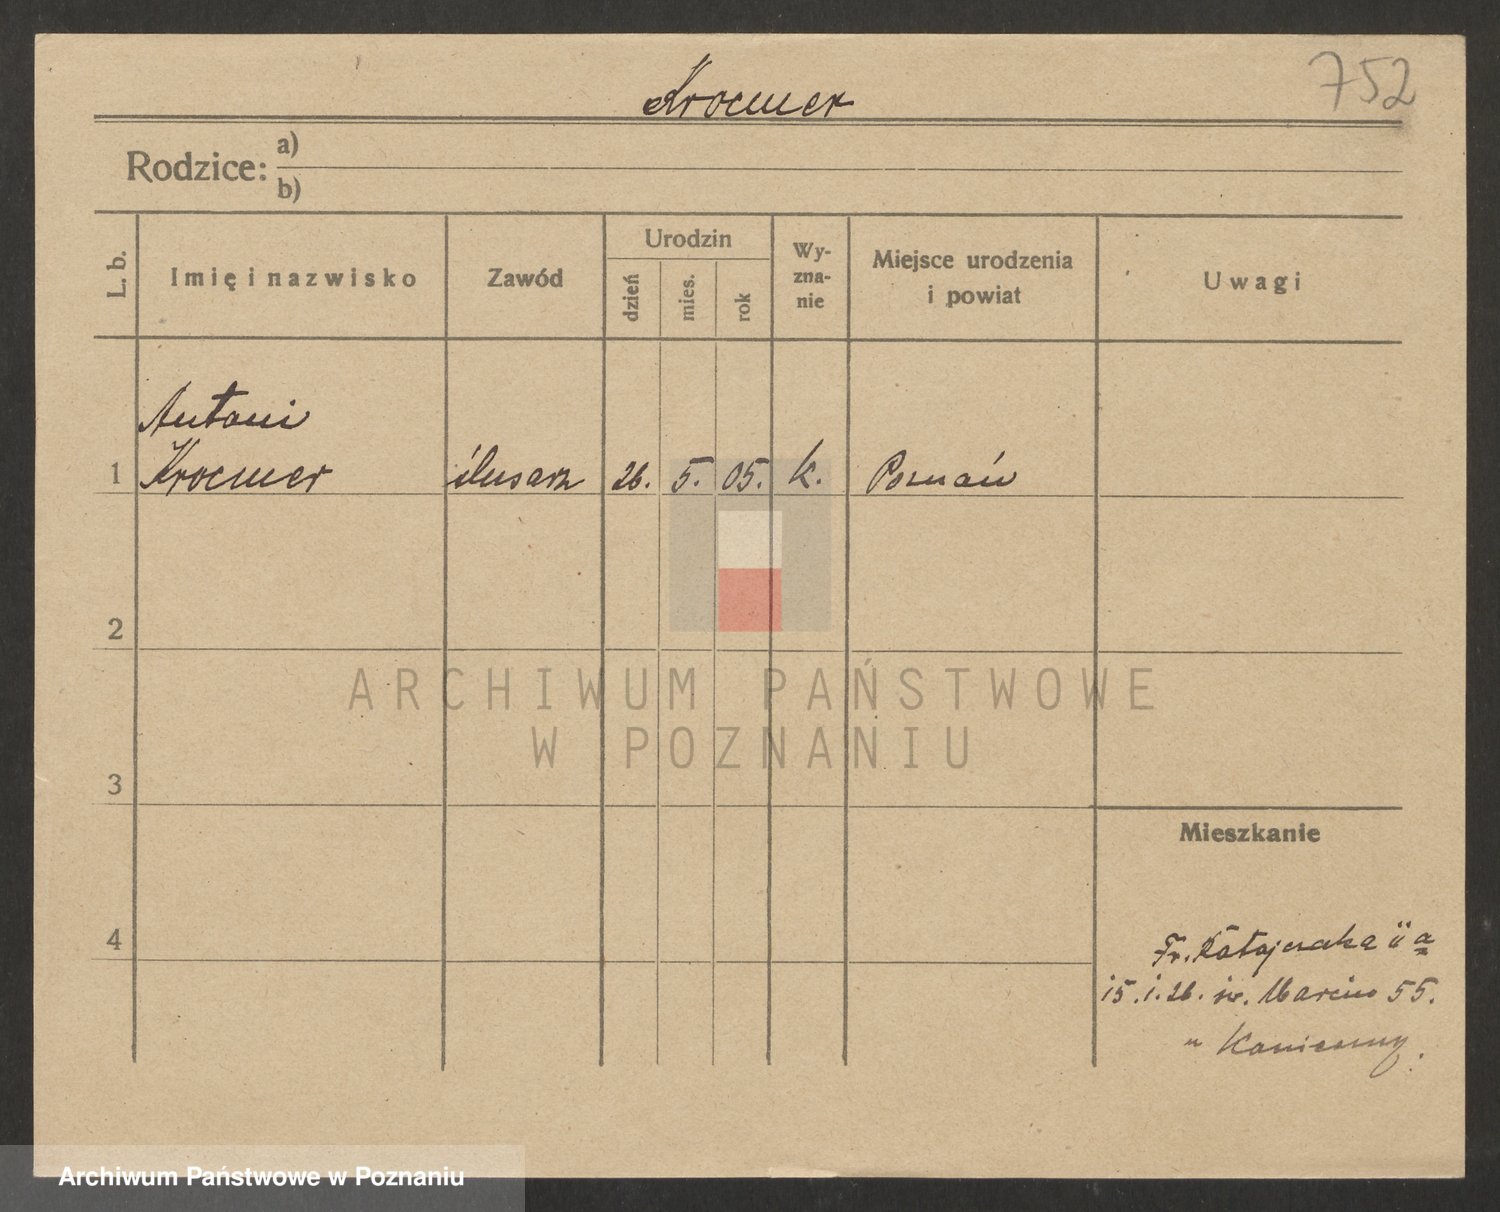 Krocmer
752
Rodzice: a)
b)
L. b.
Imię i nazwisko
Zawód
Urodzin
dzień
mies.
rok
Wy-
zna-
nie
Miejsce urodzenia
i powiat
Uwagi
Antoni
1 Krocmer ślusarz 26. 5. 05. k. Poznań
2
3
4
Mieszkanie
Fr. Ratajczaka 11 a
15.1.26. św. Marcin 55.
u
ARCHIWUM PAŃSTWOWE
W POZNANIU
Archiwum Państwowe w Poznaniu